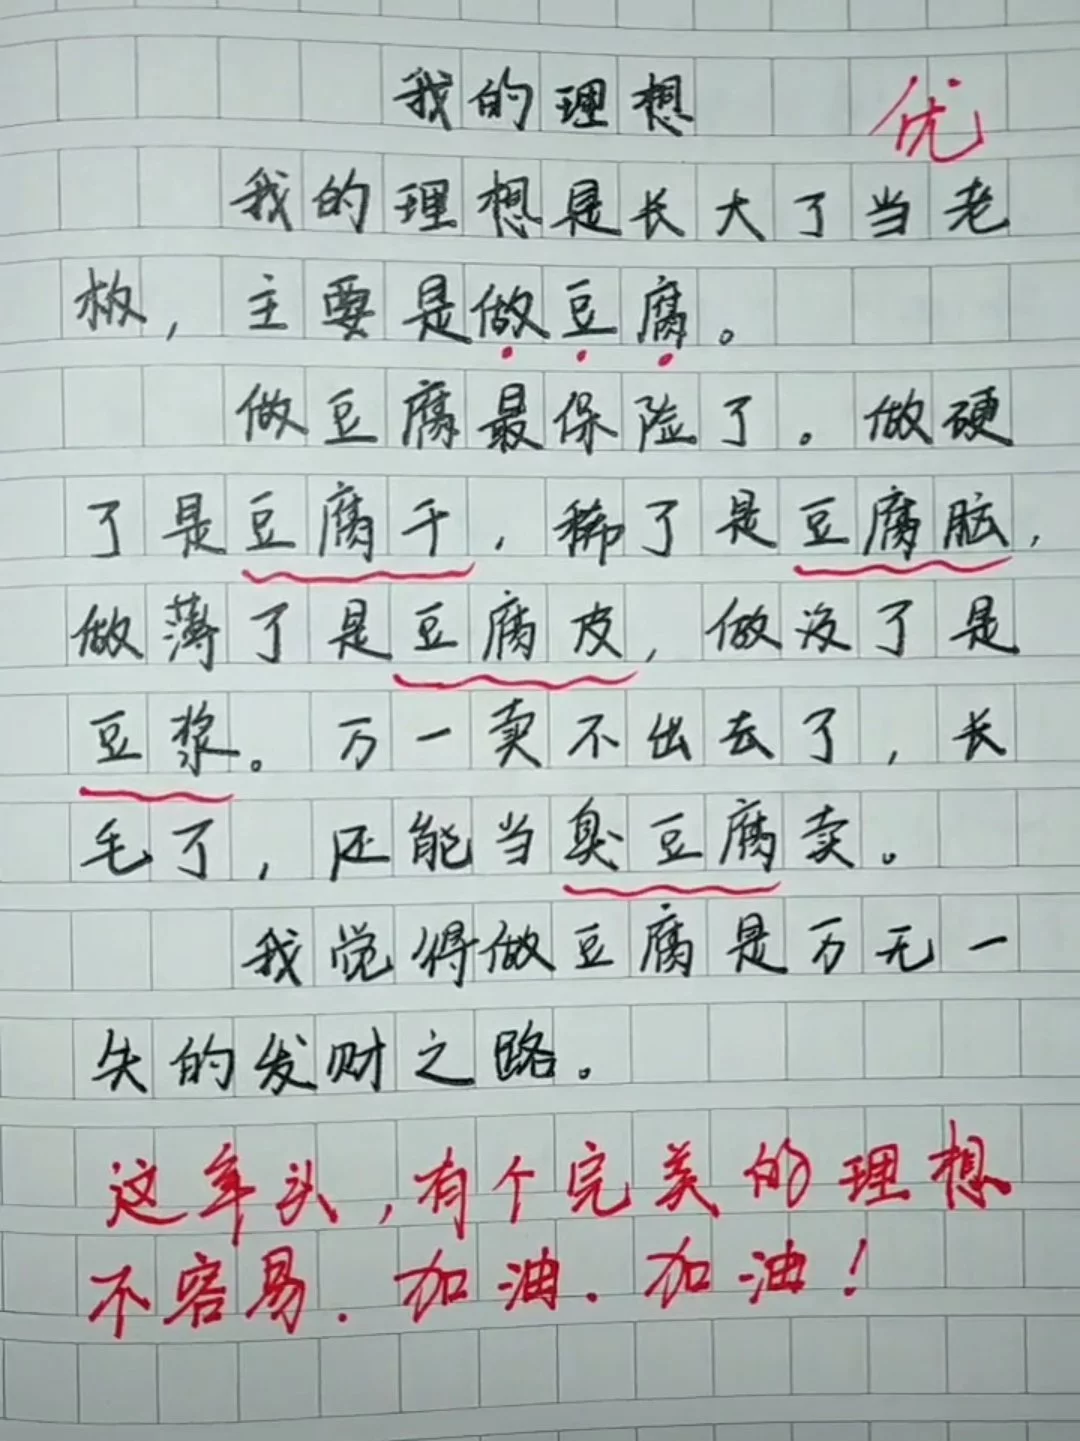 我的理想
优
我的理想是长大了当老
板，主要是做豆腐。
做豆腐最保险了。做硬
了是豆腐干，稀了是豆腐脑，
做薄了是豆腐皮，做没了是
豆浆。万一卖不出去了，长
毛了，还能当臭豆腐卖。
我觉得做豆腐是万无一
失的发财之路。
这年头，有个完美的理想
不容易．加油．加油！